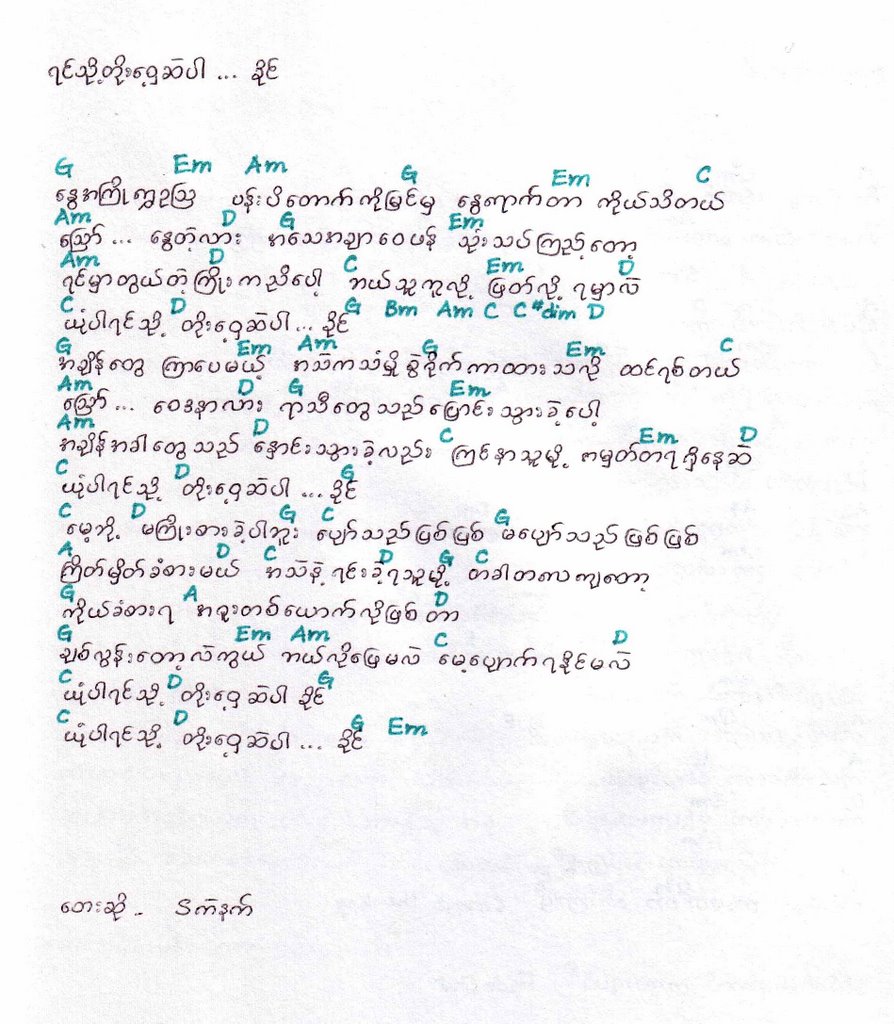 ရင်သို့တိုးဝှေ့ဆဲပါ ... ခိုင်
G Em Am G Em C
နွေအကြိုဣဥဩ ပန်းပိတောက်ကိုမြင်မှ နွေရောက်တာ ကိုယ်သိတယ်
Am D G Em
ဪ ... နွေတဲ့လား အသေအချာဝေဖန် သုံးသပ်ကြည့်တော့
Am D C Em D
ရင်မှာတွယ်တဲ့ကြိုးကညိပေါ့ ဘယ်သူကူလို့ ဖြတ်လို့ ရမှာလဲ
C D G Bm Am C C#dim D
ယုံပါရင်သို့ တိုးဝှေ့ဆဲပါ ... ခိုင်
G Em Am G Em C
အချိန်တွေ ကြာပေမယ့် အသဲကသံမှိုစွဲရိုက်ကာထားသလို ထင်ရစ်တယ်
Am D G Em
ဪ ... ဝေဒနာလား ရာသီတွေသည်ပြောင်းသွားခဲ့ပေါ့
Am D C Em D
အချိန်အခါတွေသည် နှောင်းသွားခဲ့လည်း ကြင်နာသူမို့ အမှတ်တရရှိနေဆဲ
C D G
ယုံပါရင်သို့ တိုးဝှေ့ဆဲပါ ... ခိုင်
C D G C G
မေ့ဘို့ မကြိုးစားခဲ့ပါဘူး ပျော်သည်ဖြစ်ဖြစ် မပျော်သည်ဖြစ်ဖြစ်
A D C D G C
ကြိတ်မှိတ်ခံစားမယ် အသဲနဲ့ရင်းခဲ့ရသူမို့ တခါတလေကျတော့
G A D
ကိုယ်ခံစားရ အရူးတစ်ယောက်လိုဖြစ်တာ
G Em Am C D
ချစ်လွန်းတော့လဲကွယ် ဘယ်လိုဖြေမလဲ မေ့ပျောက်ရနိုင်မလဲ
C D G
ယုံပါရင်သို့ တိုးဝှေ့ဆဲပါ ခိုင်
C D G Em
ယုံပါရင်သို့ တိုးဝှေ့ဆဲပါ ... ခိုင်
တေးဆို - Sကဲနက်